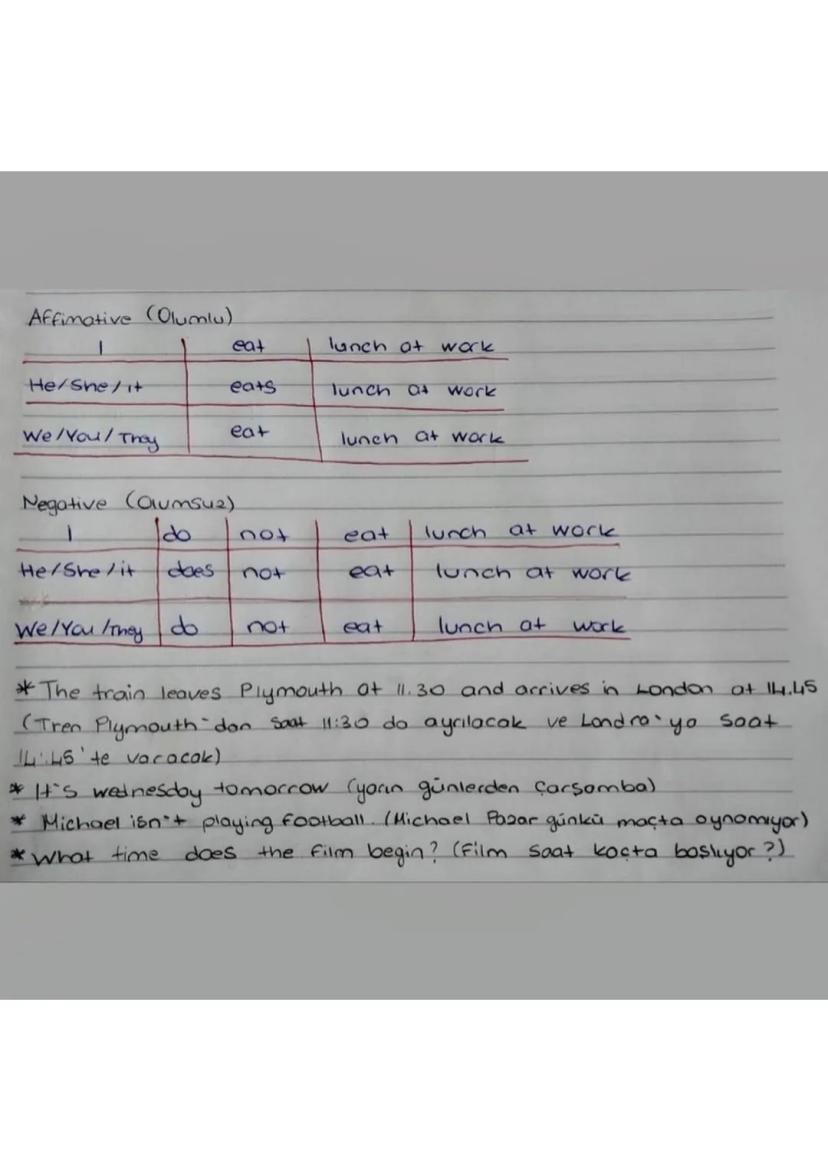 Affimative (Olumlu)
I eat lunch at work
He/She/it eats lunch at work
We/You/They eat lunch at work
Negative (Olumsuz)
I do not eat lunch at work
He/She/it does not eat lunch at work
We/You/They do not eat lunch at work
* The train leaves Plymouth at 11.30 and arrives in London at 14.45
(Tren Plymouth'dan saat 11:30 da ayrılacak ve Londra'ya saat
14:45'te varacak)
* It's wednesday tomorrow (yarın günlerden Çarşamba)
* Michael isn't playing football. (Michael Pazar günkü maçta oynamıyor)
* What time does the film begin? (Film saat kaçta başlıyor?)